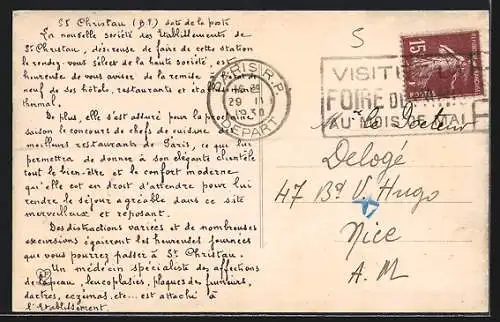 St Christau (B.P.) date de la poste
La nouvelle société des Etablissements de
St Christau, désireuse de faire de cette station
le rendez-vous sélect de la haute société, est
heureuse de vous aviser de la remise à
neuf de ses hôtels, restaurants et établissement
thermal.
De plus, elle s'est assuré pour la prochaine
saison le concours de chefs de cuisine des
meilleurs restaurants de Paris, ce qui lui
permettra de donner à son élégante clientèle
tout le bien-être et le confort moderne
qu'elle est en droit d'attendre pour lui
rendre le séjour agréable dans ce site
merveilleux et reposant.
Des distractions variées et de nombreuses
excursions égaieront les heureuses journées
que vous pourrez passer à St Christau.
Un médecin spécialiste des affections
de la peau, leucoplasies, plaques des fumeurs,
dartres, eczémas, etc... est attaché à
l'Etablissement.
5
PARIS R.P.
29 III
1930
DÉPART
15
VISITEZ LA
FOIRE DE PARIS
AU MOIS DE MAI
Le Docteur
Delogé
47 Bd V. Hugo
Nice
A. M